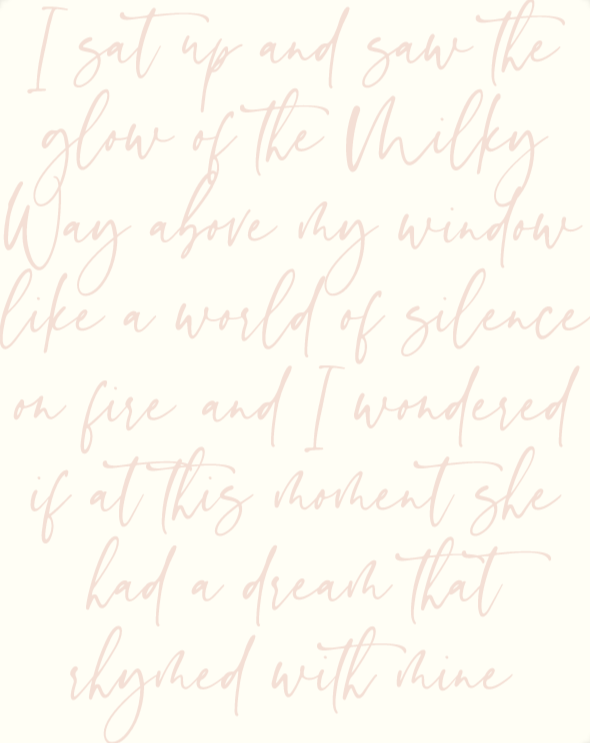 I sat up and saw the
glow of the Milky
Way above my window
like a world of silence
on fire and I wondered
if at this moment she
had a dream that
rhymed with mine